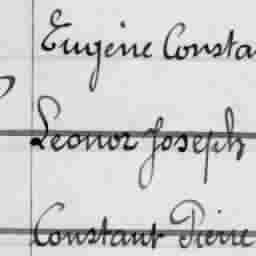 Eugène Consta
Leonor Joseph
Constant Pierre